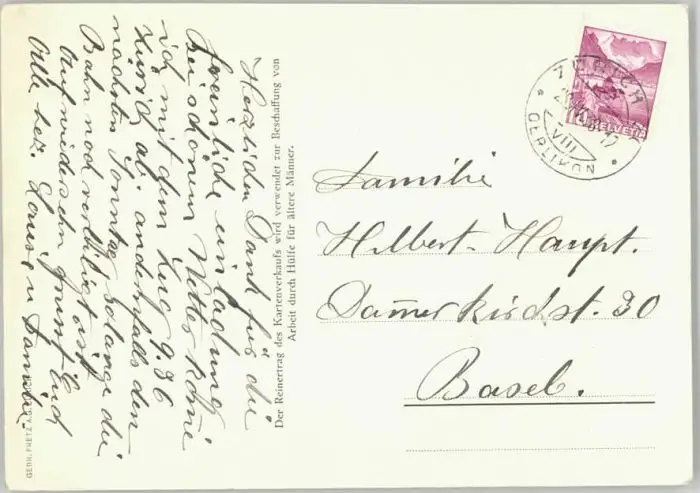 Herzlichen Dank für die
freundliche einladung
Bei schönem Wetter komme
ich mit dem Zug 9.36
Zürich ab. andernfalls den
nächsten Sonntag solange die
Bahn noch verbilligt ist
Auf wiedersehn grüsst Euch
Alle bez. Louise u Familie.
Der Reinertrag des Kartenverkaufs wird verwendet zur Beschaffung von
Arbeit durch Hülfe für ältere Männer.
GEBR. FRETZ A.G. ZÜRICH
ZÜRICH
VIII
OERLIKON
HELVETIA
Familie
Hilbert-Haupt.
Dammerkirchst. 30
Basel.